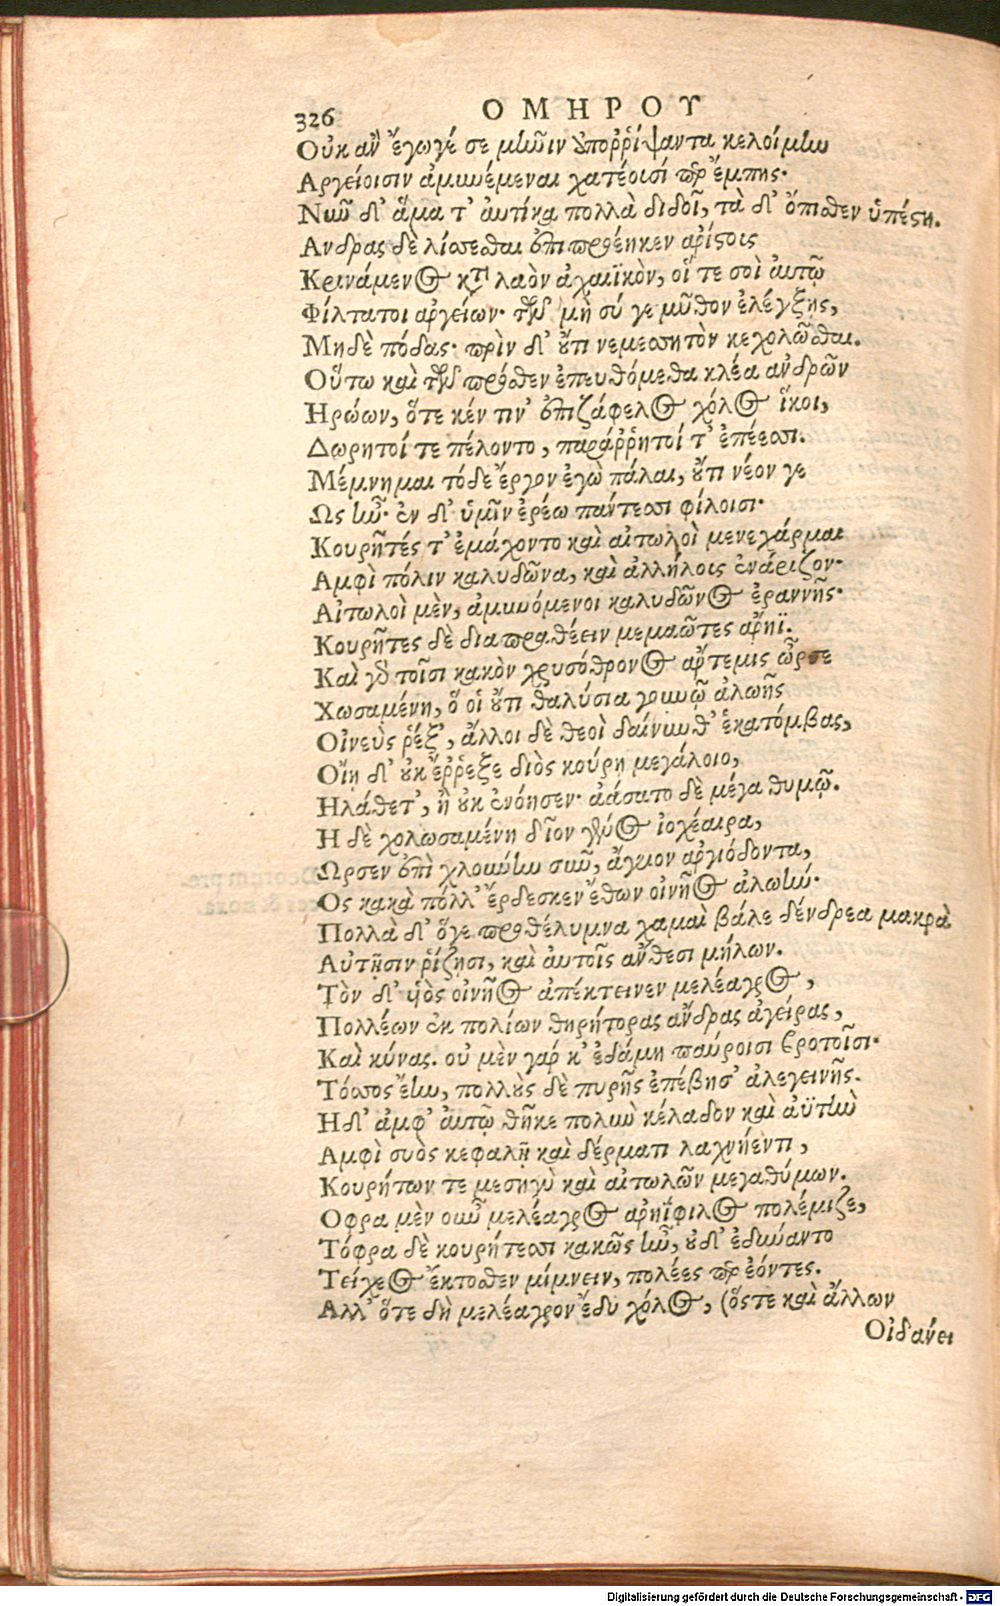 326
ΟΜΗΡΟΥ
Οὐκ ἂν ἔγωγέ σε μῆνιν ὑποῤῥίψαντα κελοίμην
Αργείοισιν ἀμυνέμεναι χατέουσί περ ἔμπης·
Νῦν δ' ἅμα τ' αὐτίκα πολλὰ διδοῖ, τὰ δ' ὄπισθεν ὑπέστη.
Ανδρας δὲ λίσσεσθαι ἐπιπροέηκεν ἀρίστοις
Κρινάμενος κατὰ λαὸν ἀχαιϊκὸν, οἵ τε σοὶ αὐτῷ
Φίλτατοι ἀργείων· τῶν μὴ σύ γε μῦθον ἐλέγξης,
Μηδὲ πόδας· πρὶν δ' οὔτι νεμεσσητὸν κεχολῶσθαι.
Οὕτω καὶ τῶν πρόσθεν ἐπευθόμεθα κλέα ἀνδρῶν
Ηρώων, ὅτε κέν τιν' ἐπιζάφελος χόλος ἵκοι,
Δωρητοί τε πέλοντο, παράῤῥητοί τ' ἐπέεσσι.
Μέμνημαι τόδε ἔργον ἐγὼ πάλαι, οὔτι νέον γε
Ως ἦν· ἐν δ' ὑμῖν ἐρέω πάντεσσι φίλοισι·
Κουρῆτές τ' ἐμάχοντο καὶ αἰτωλοὶ μενεχάρμαι
Αμφὶ πόλιν καλυδῶνα, καὶ ἀλλήλοις ἐνάριζον·
Αἰτωλοὶ μὲν, ἀμυνόμενοι καλυδῶνος ἐραννῆς·
Κουρῆτες δὲ διαπραθέειν μεμαῶτες ἄρηϊ.
Καὶ γὰρ τοῖσι κακὸν χρυσόθρονος ἄρτεμις ὦρσε
Χωσαμένη, ὅ οἱ οὔτι θαλύσια γουνῷ ἀλωῆς
Οἰνεὺς ῥέξ', ἄλλοι δὲ θεοὶ δαίνυνθ' ἑκατόμβας,
Οἴῃ δ' οὐκ ἔῤῥεξε διὸς κούρῃ μεγάλοιο,
Ηλάθετ', ἢ οὐκ ἐνόησεν· ἀάσατο δὲ μέγα θυμῷ.
Η δὲ χολωσαμένη δῖον γένος ἰοχέαιρα,
Ωρσεν ἐπὶ χλουύην σῦν, ἄγριον ἀργιόδοντα,
Ος κακὰ πόλλ' ἔρδεσκεν ἔθων οἰνῆος ἀλωήν·
Πολλὰ δ' ὅγε προθέλυμνα χαμαὶ βάλε δένδρεα μακρὰ
Αὐτῇσιν ῥίζησι, καὶ αὐτοῖς ἄνθεσι μήλων.
Τὸν δ' υἱὸς οἰνῆος ἀπέκτεινεν μελέαγρος,
Πολλέων ἐκ πολίων θηρήτορας ἄνδρας ἀγείρας,
Καὶ κύνας. οὐ μὲν γάρ κ' ἐδάμη παύροισι βροτοῖσι·
Τόσσος ἔην, πολλοὺς δὲ πυρῆς ἐπέβησ' ἀλεγεινῆς.
Ηδ' ἀμφ' αὐτῷ θῆκε πολὺν κέλαδον καὶ ἀϋτὴν
Αμφὶ συὸς κεφαλῇ καὶ δέρματι λαχνήεντι,
Κουρήτων τε μεσηγὺ καὶ αἰτωλῶν μεγαθύμων.
Οφρα μὲν οὖν μελέαγρος ἀρηΐφιλος πολέμιζε,
Τόφρα δὲ κουρήτεσσι κακῶς ἦν, οὐδ' ἐδύναντο
Τείχεος ἔκτοσθεν μίμνειν, πολέες περ ἐόντες.
Αλλ' ὅτε δὴ μελέαγρον ἔδυ χόλος, (ὅστε καὶ ἄλλων
Οἰδάνει
Digitalisierung gefördert durch die Deutsche Forschungsgemeinschaft - DFG